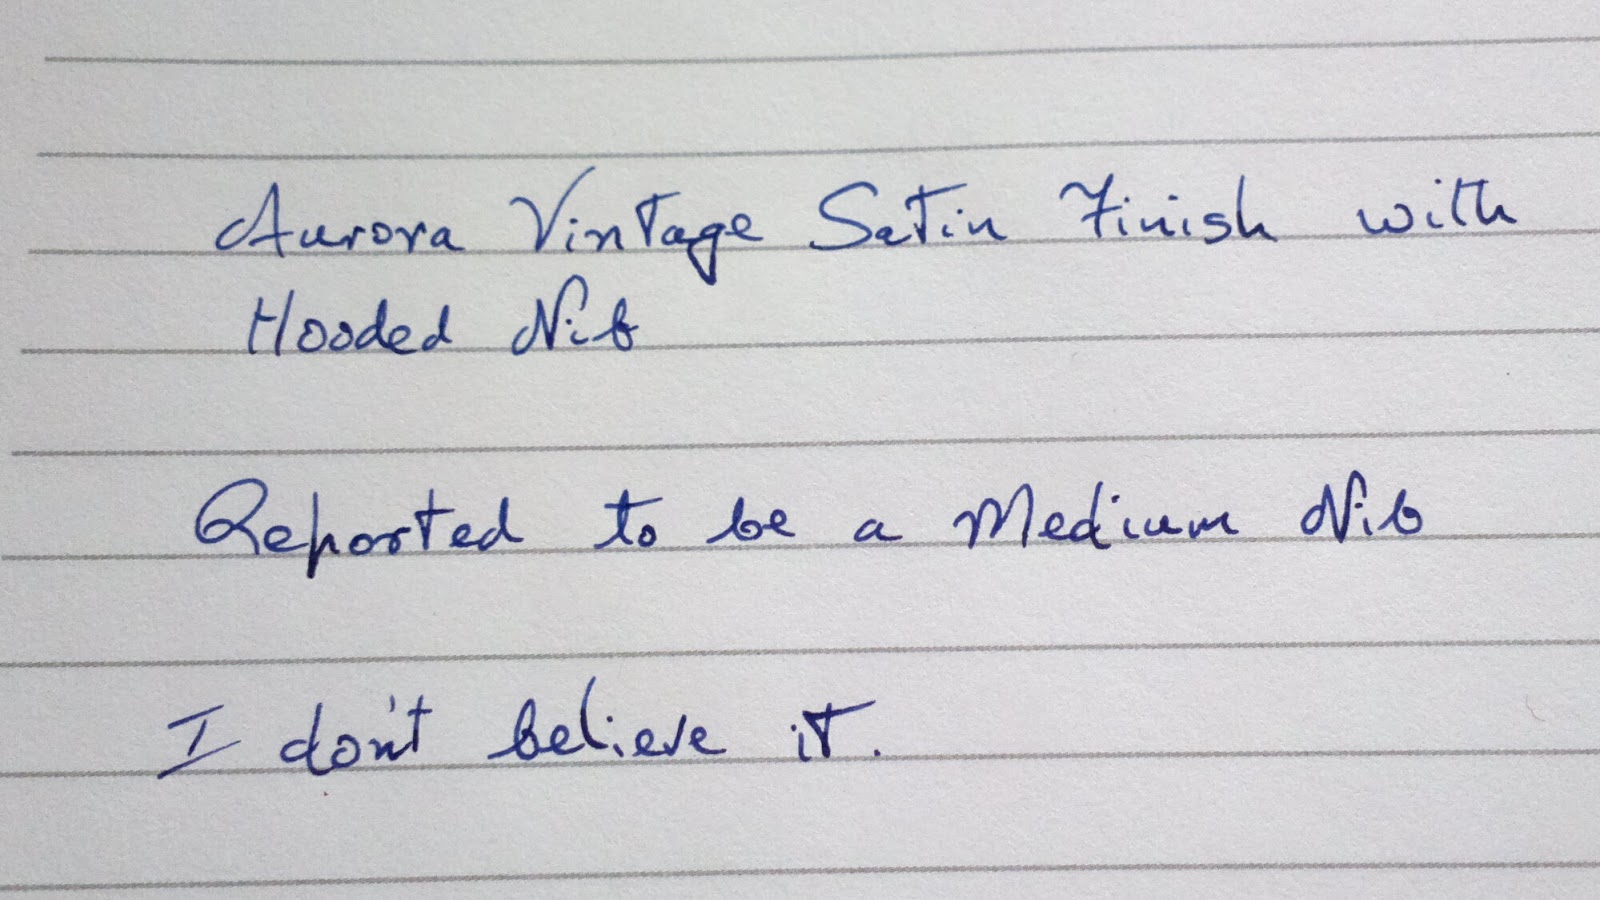 Aurora Vintage Satin Finish with
Hooded Nib
Reported to be a Medium Nib
I don't believe it.